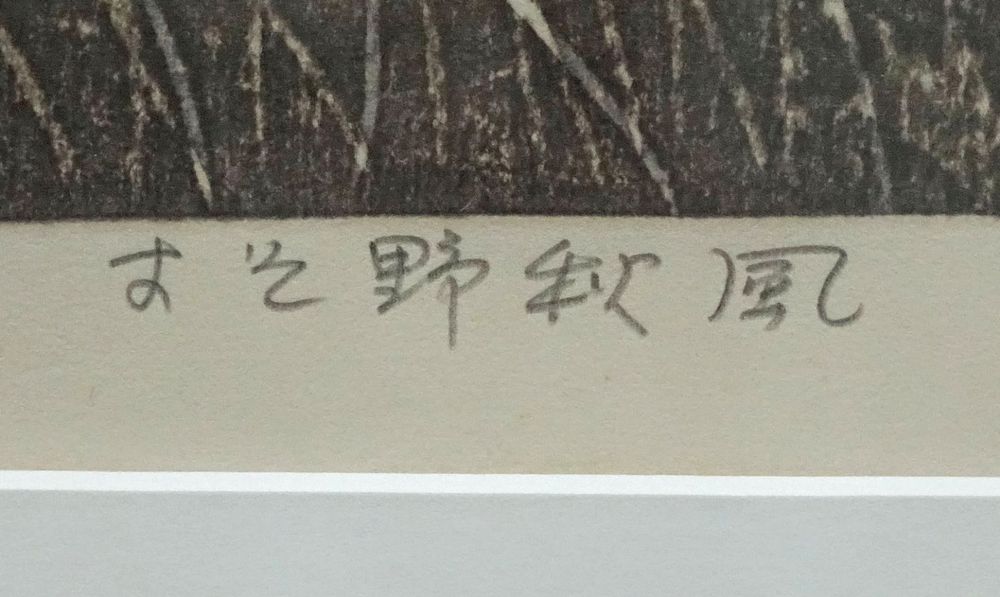 すそ野秋風